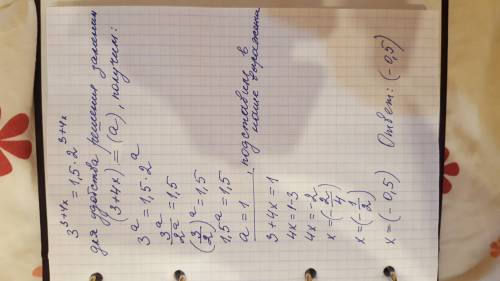 3^{3+4x} = 1,5 · 2^{3+4x}
для удобства решения заменим
(3+4x) = (a), получим:
3^a = 1,5 · 2^a
3^a / 2^a = 1,5
(3/2)^a = 1,5
1,5^a = 1,5
a = 1, подставить в
наше выражение
3+4x = 1
4x = 1-3
4x = -2
x = (- 2/4)
x = (- 1/2)
x = (- 0,5) Ответ: (- 0,5)